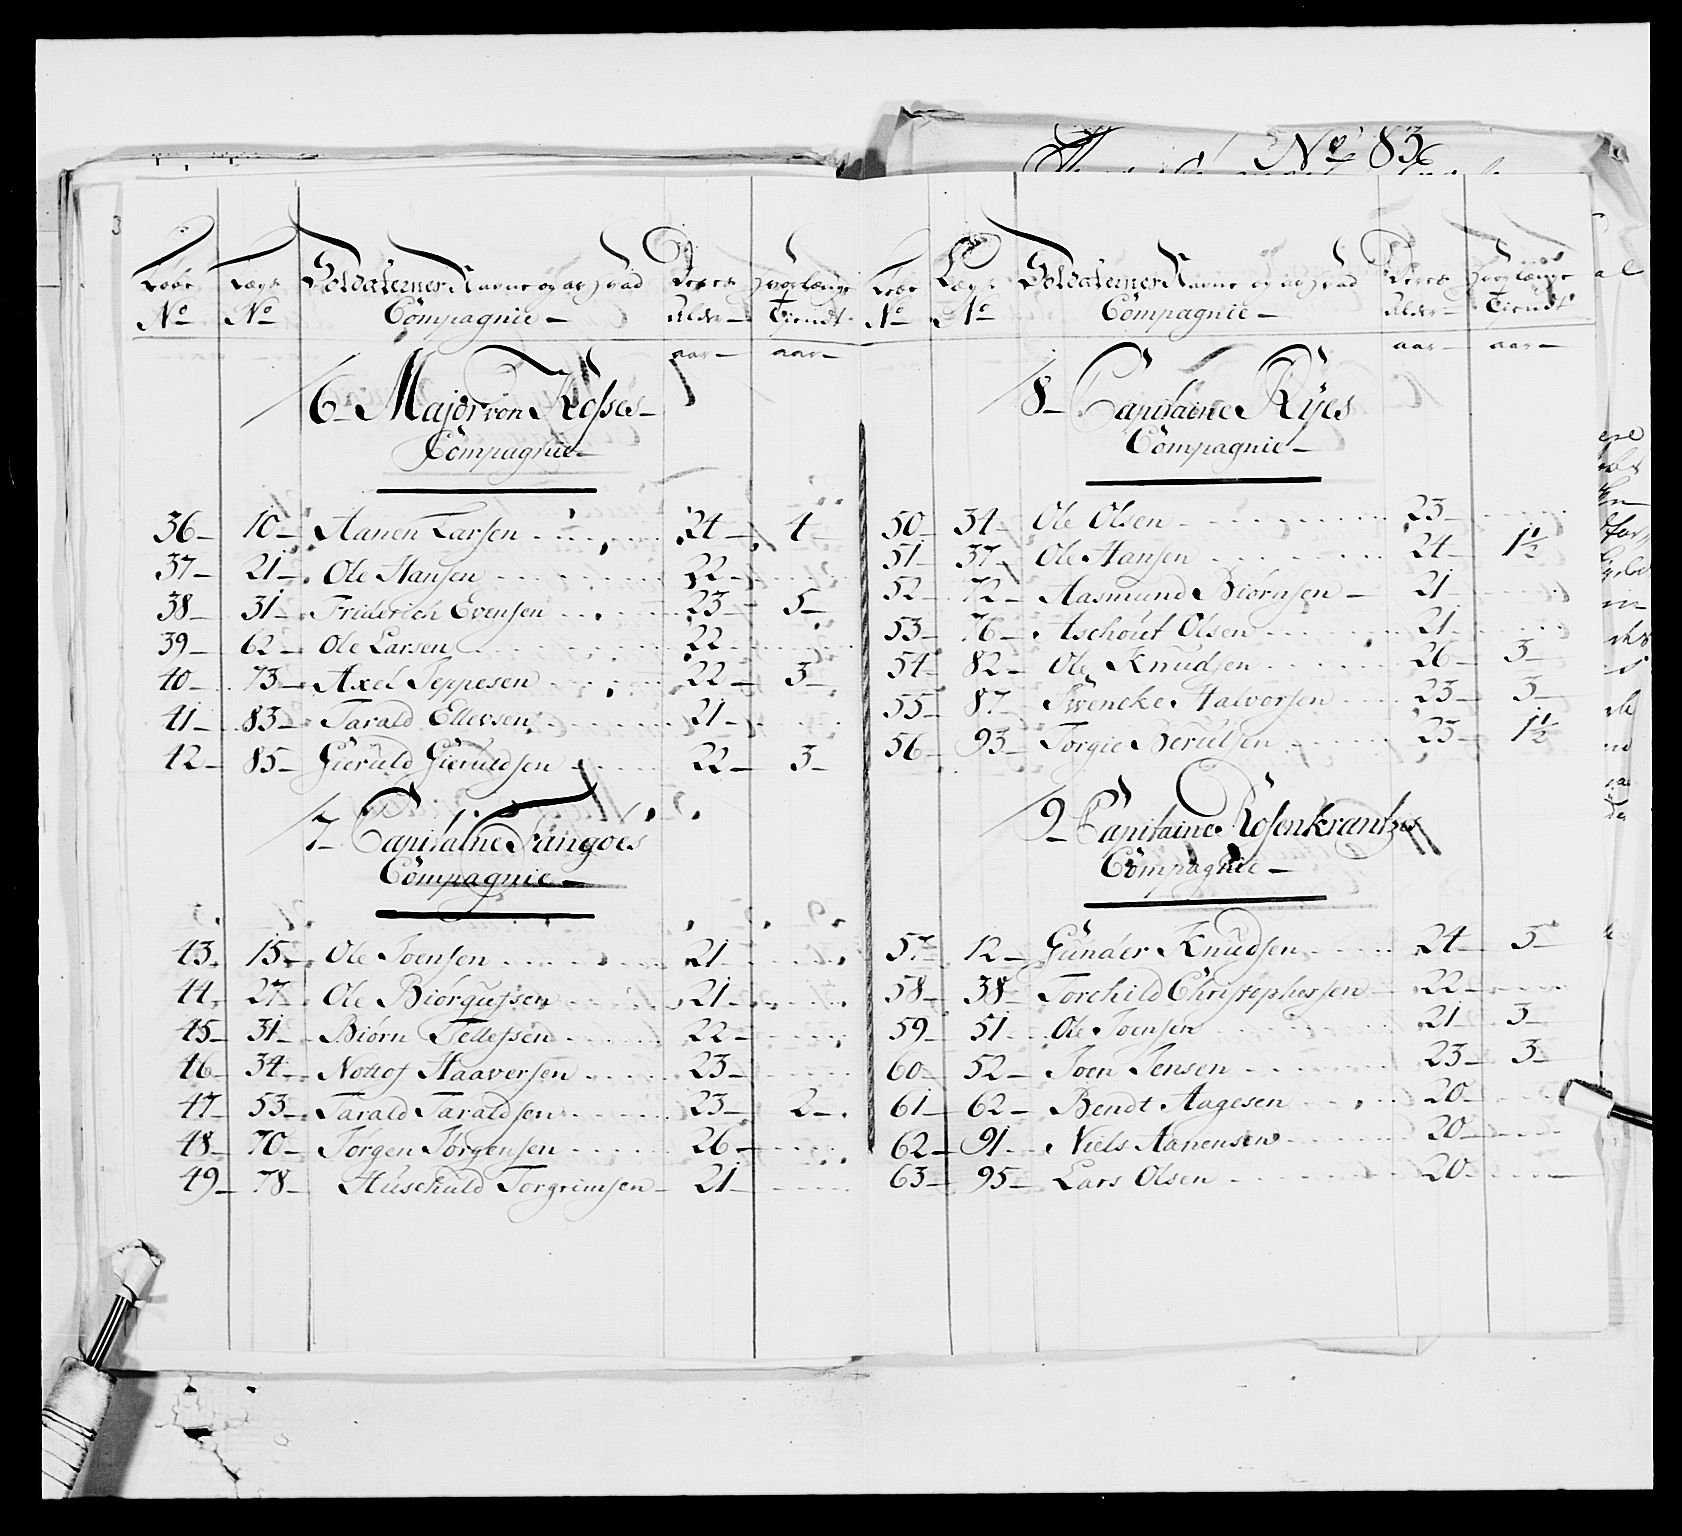 No 83
Løbe Lægs Soldaternes Navne og af hvad Deres hvorlænge
No No Compagnie - alder - tiendt
aar - aar -
6 - Major von Kosses -
Compagnie -
36 - 10 - Aanen Larsen 24 - 4 -
37 - 21 - Ole Hansen 22 -
38 - 31 - Friderich Evensen 23 5 -
39 - 62 - Ole Larsen 22
40 - 73 - Axel Jeppesen 22 - 3 -
41 - 83 - Tarald Ellevsen 21 -
42 - 85 - Gieruld Gieruldsen 22 - 3 -
7 - Capitaine Fangoes
Compagnie -
43 15 - Ole Joensen 21
44 27 Ole Biørgufsen 21 -
45 - 31 - Biørn Tellefsen 22 -
46 34 - Nottof Haaversen 23 -
47 - 53 - Tarald Taraldsen 23 - 2 -
48 - 70 - Jørgen Jørgensen 26 -
49 - 78 - Huschuld Torgrimsen - 21 -
Løbe Lægs Soldaternes Navne og af hvad Deres hvorlænge
No No Compagnie - alder - tiendt
aar - aar -
8 - Capitaine Ryes
Compagnie -
50 - 34 - Ole Olsen 23 -
51 - 37 - Ole Hansen 24 - 1½
52 - 72 - Aasmund Biørnsen - 21 -
53 - 76 - Aschout Olsen 21
54 - 82 - Ole Knudsen 26 - 3 -
55 - 87 - Swencke Halvorsen 23 - 3 -
56 - 93 - Torgie Beruldsen 23 - 1½
9 - Capitaine Rosenkrantzes
Compagnie -
57 - 12 - Gunder Knudsen 24 5 -
58 - 38 - Torchild Christophersen 22 -
59 - 51 Ole Joensen 21 3 -
60 52 - Joen Jensen 23 - 3 -
61 - 62 - Bendt Aagesen 20 -
62 - 91 Niels Aanensen 20 -
63 - 95 - Lars Olsen 20 -